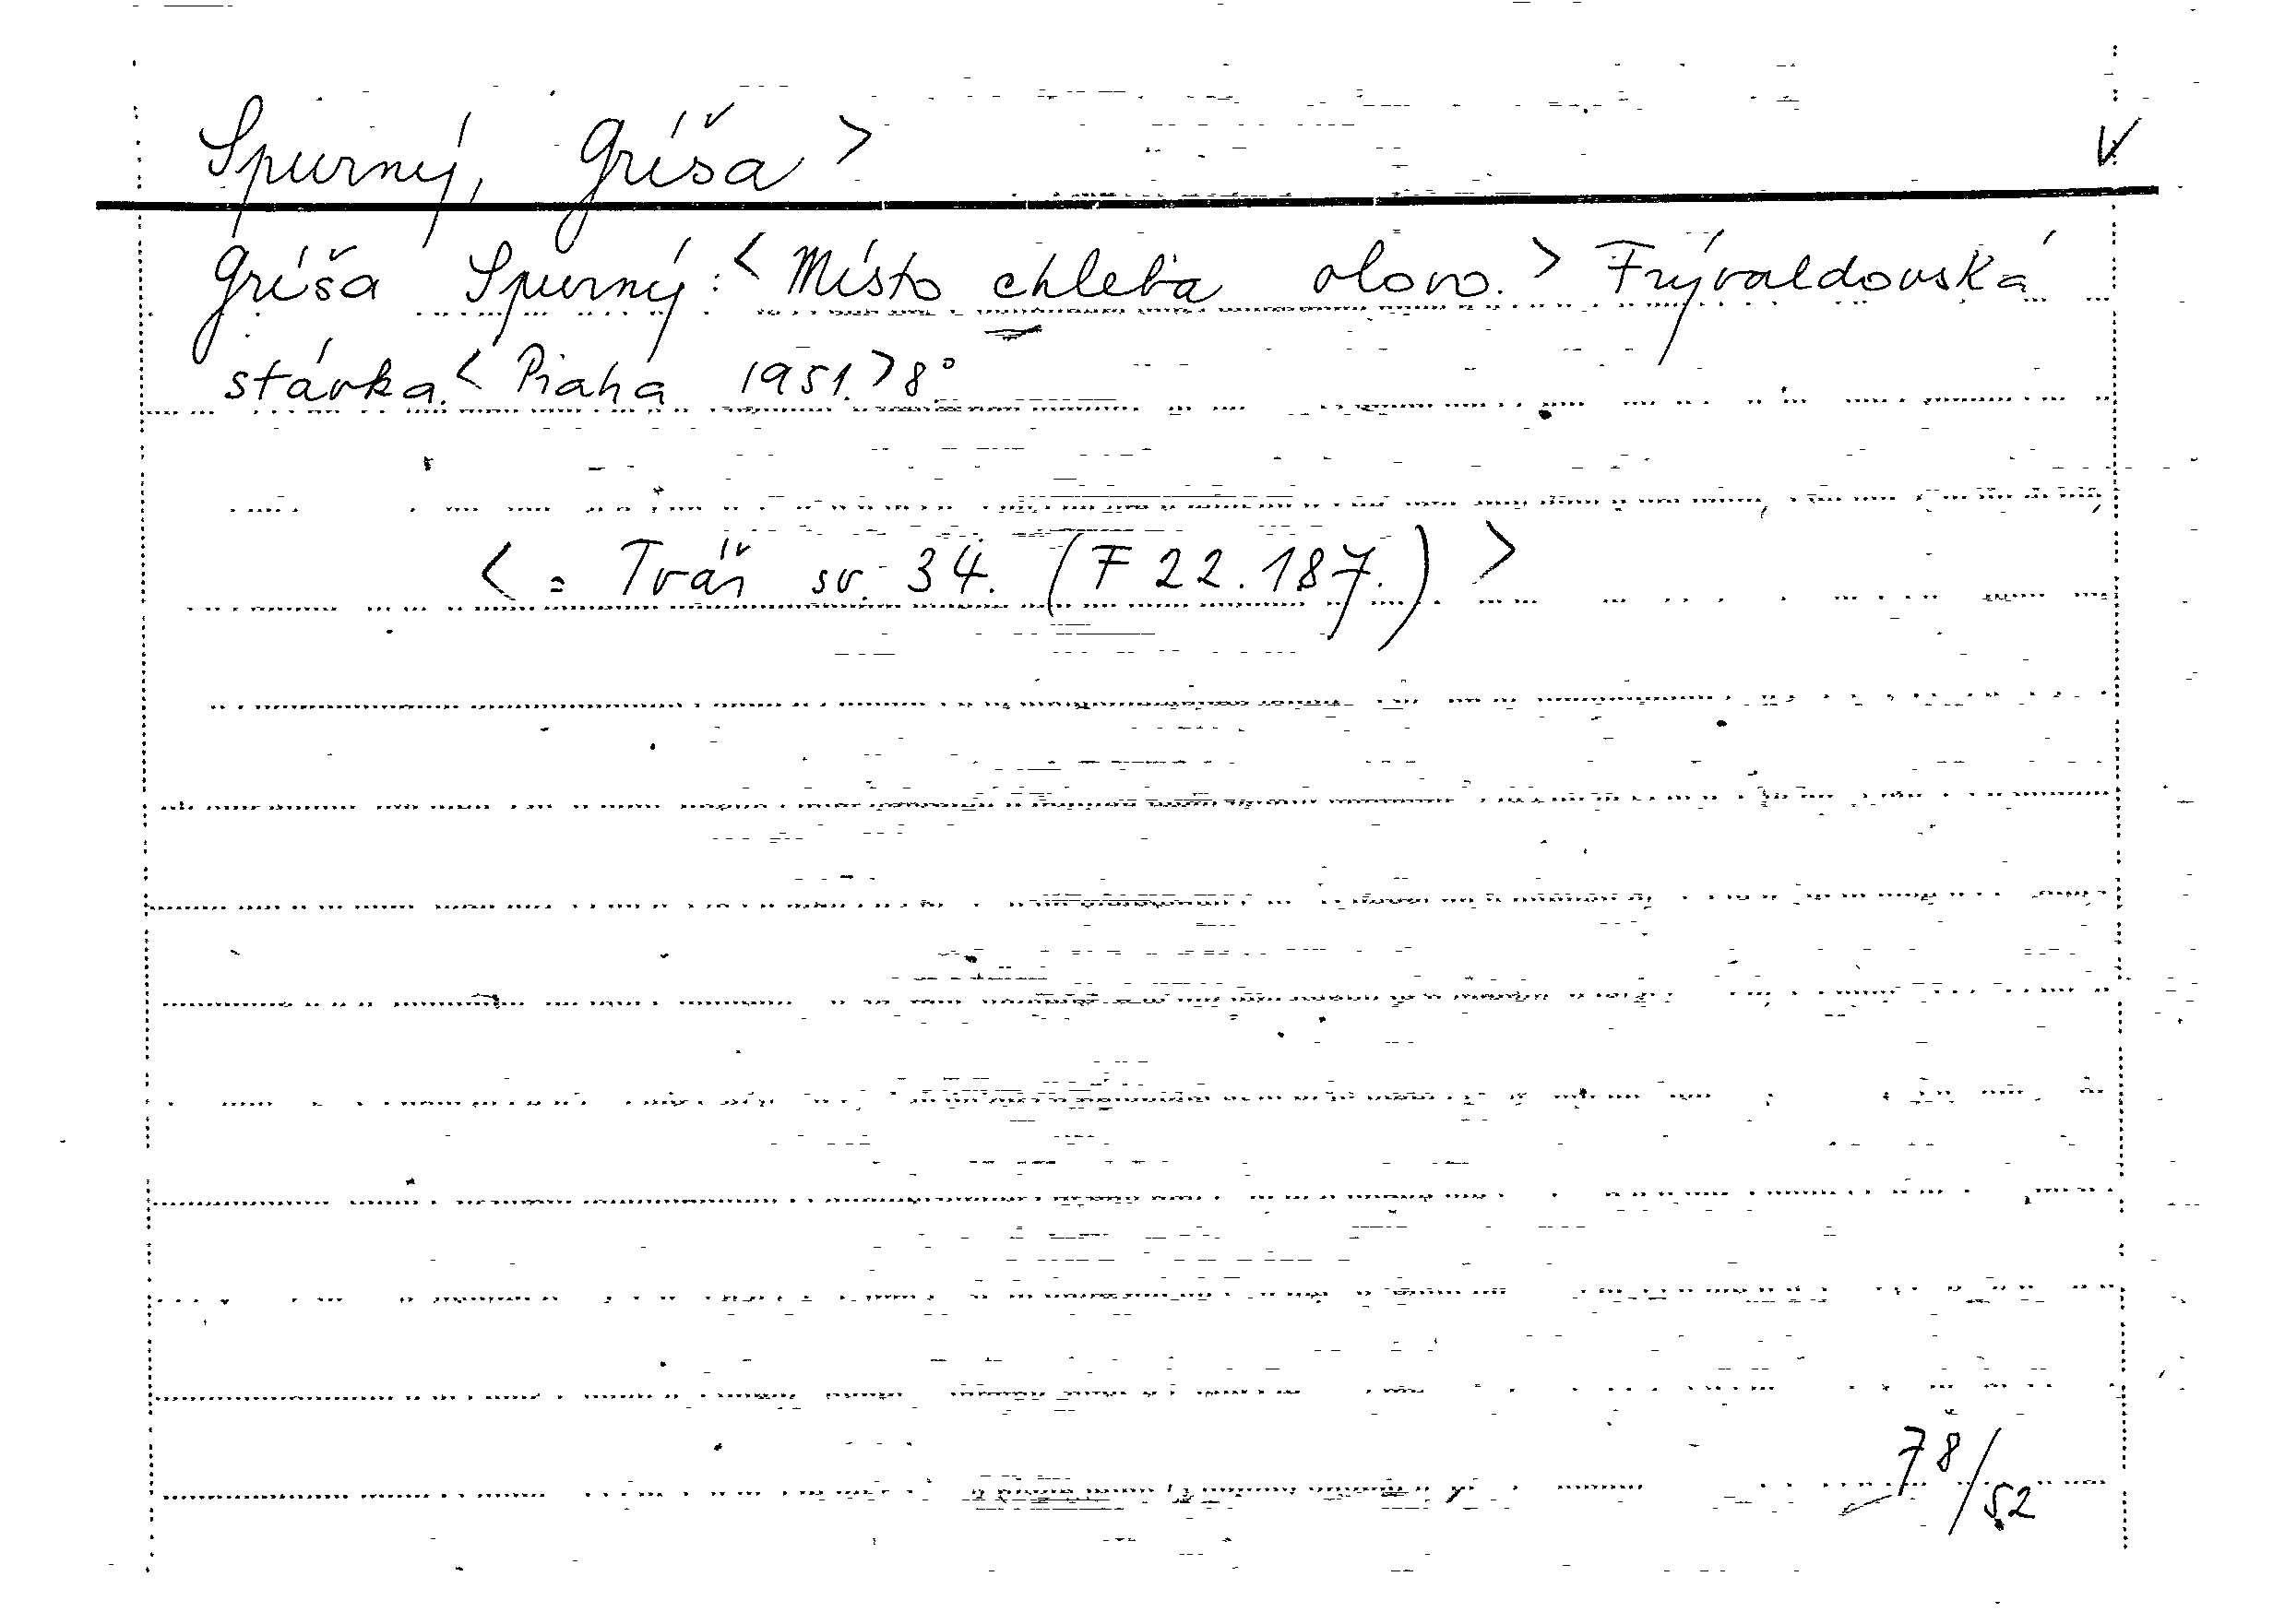 Spurný, Gríša >
Gríša Spurný: < Místo chleba olovo. > Frývaldovská
stávka. < Praha 1951. > 8°
< = Tvář sv. 34. (F 22.187.) >
78/52